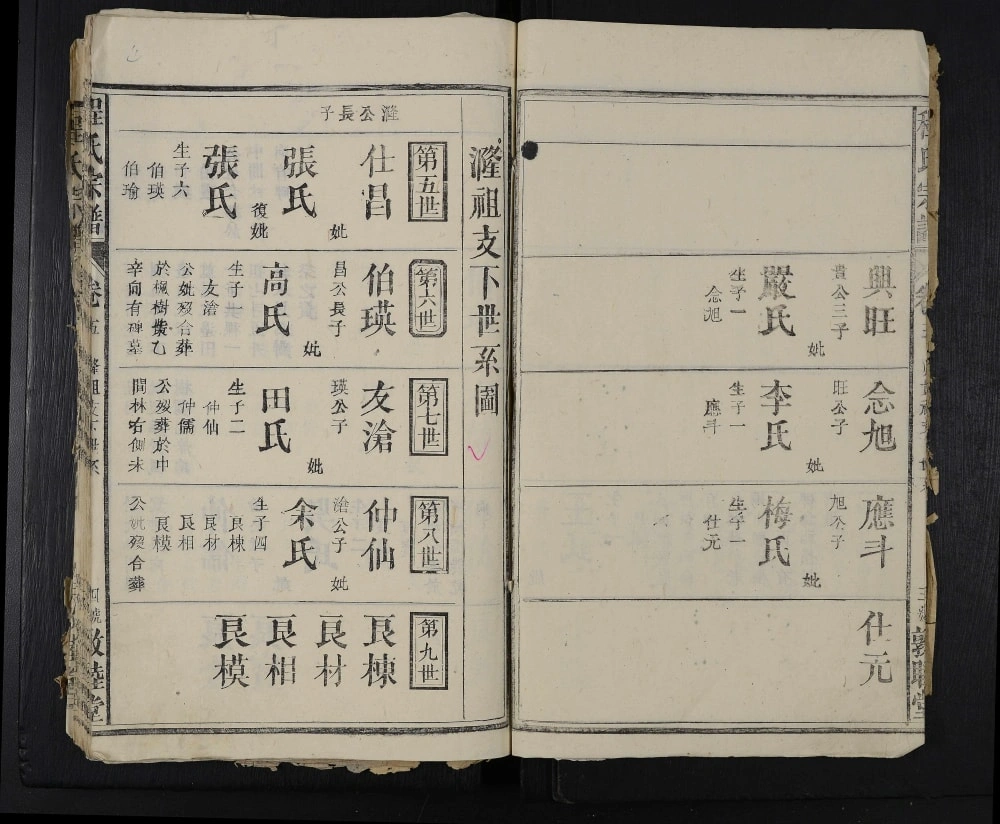 興旺
貴公三子
妣
嚴氏
生子一
念旭
念旭
旺公子
妣
李氏
生子一
應斗
應斗
旭公子
妣
梅氏
生子一
仕元
仕元
漋祖支下世系圖
漋公長子
第五世
仕昌
妣
張氏
復妣
張氏
生子六
伯瑛
伯瑜
第六世
伯瑛
昌公長子
妣
高氏
生子一
友滄
公妣歿合葬
於楓樹㘭乙
辛向有碑墓
第七世
友滄
瑛公子
妣
田氏
生子二
仲仙
仲儒
公歿葬於中
間林右側未
第八世
仲仙
滄公子
妣
余氏
生子四
良棟
良材
良相
良模
公妣歿合葬
第九世
良棟
良材
良相
良模
程氏宗譜
卷五
敦睦堂